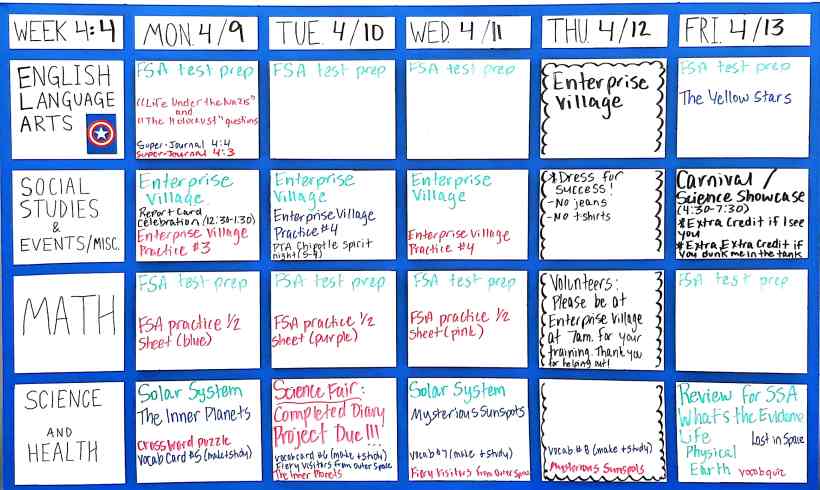 WEEK 4:4
MON. 4/9
TUE. 4/10
WED. 4/11
THU. 4/12
FRI. 4/13
ENGLISH
LANGUAGE
ARTS
FSA test prep
"Life Under the Nazis"
and
"The Holocaust" questions
Super-Journal 4:4
Super-Journal 4:3
FSA test prep
FSA test prep
Enterprise
Village
FSA test prep
The Yellow Stars
SOCIAL
STUDIES
&
EVENTS/MISC.
Enterprise
Village
Report Card
Celebration (12:30-1:30)
Enterprise Village
Practice #3
Enterprise
Village
Enterprise Village
Practice #4
PTA Chipotle Spirit
night (5-9)
Enterprise
Village
Enterprise Village
Practice #4
*Dress for
success!
-No jeans
-No tshirts
Carnival /
Science Showcase
(4:30-7:30)
*Extra Credit if I see
you
*Extra, Extra Credit if
you dunk me in the tank
MATH
FSA test prep
FSA practice 1/2
sheet (blue)
FSA test prep
FSA practice 1/2
sheet (purple)
FSA test prep
FSA practice 1/2
sheet (pink)
Volunteers:
Please be at
Enterprise Village
at 7am. for your
training. Thank you
for helping out!
FSA test prep
SCIENCE
AND
HEALTH
Solar System
The Inner Planets
Crossword puzzle
Vocab Card #5 (make+study)
Science Fair:
Completed Diary
Project Due!!!
vocab card #6 (make +study)
Fiery Visitors from Outer Space
The Inner Planets
Solar System
Mysterious Sunspots
vocab #7 (make +study)
Fiery Visitors from Outer Space
vocab #8 (make +study)
Mysterious Sunspots
Review for SSA
What's the Evidence
Life
Lost in Space
Physical
Earth
vocab quiz